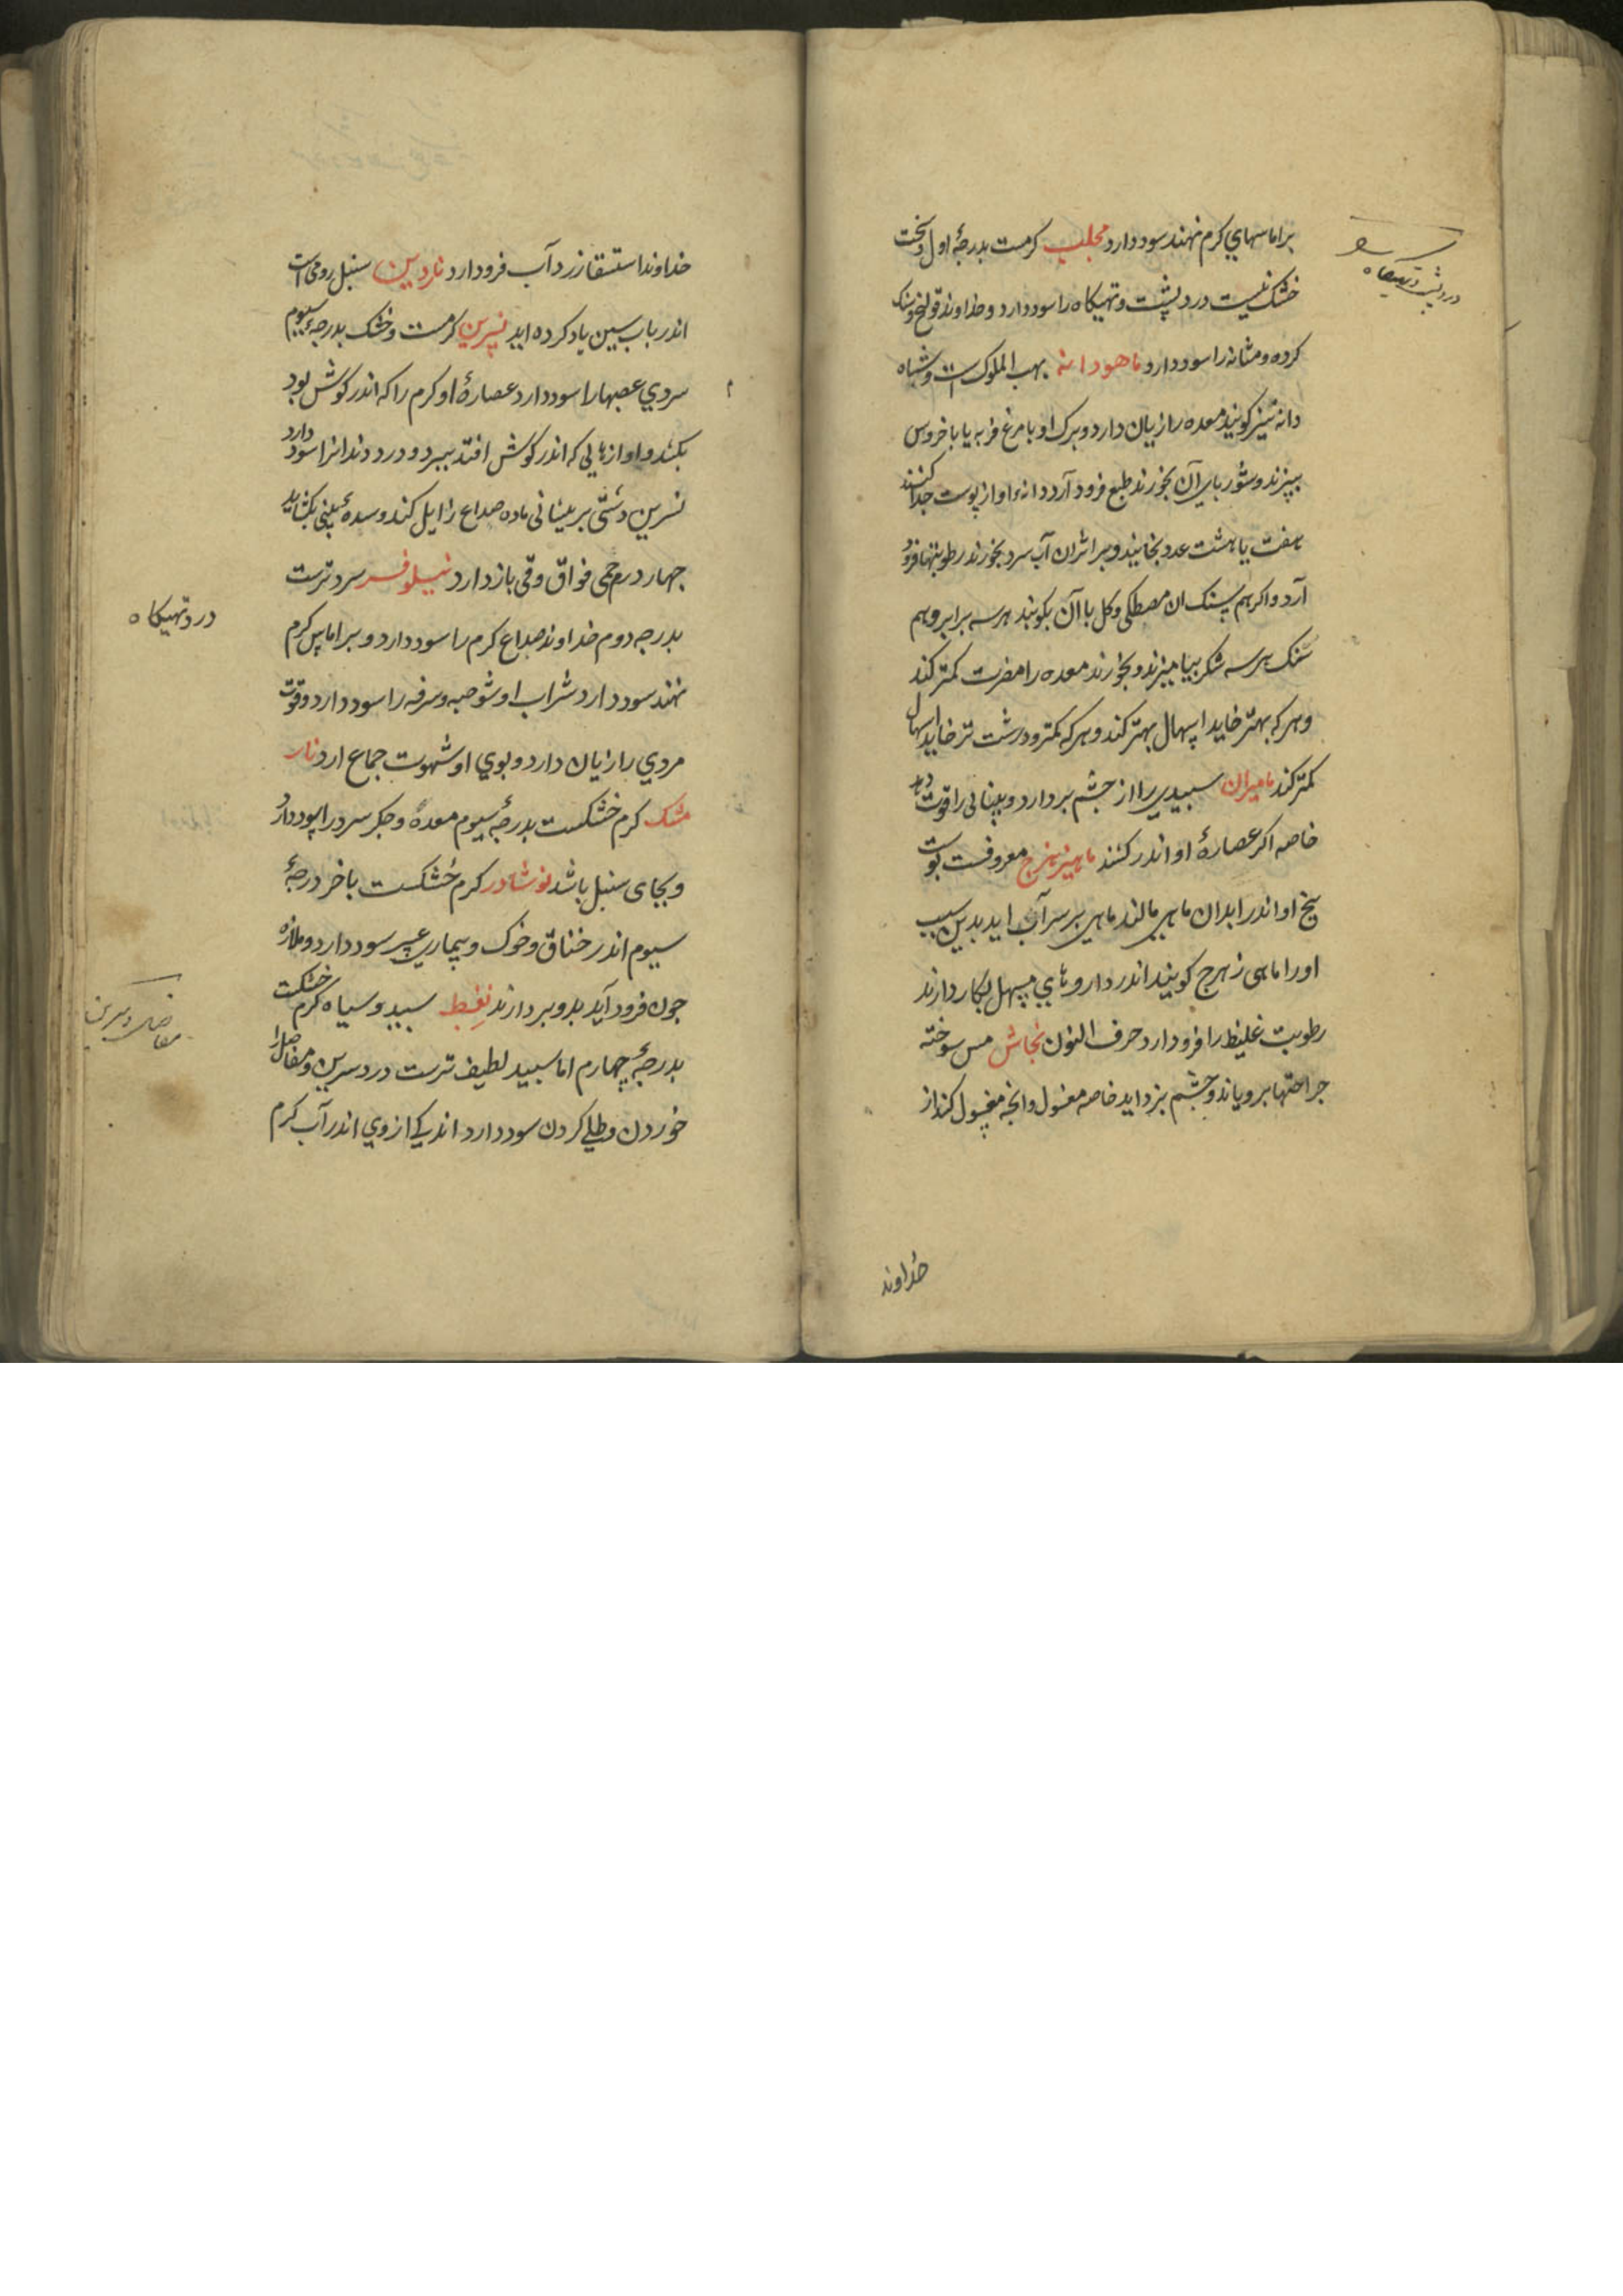 براماسهاي كرم نهند سود دارد محلب كرمست بدرجهٔ اول و سخت
خشك نيست درد پشت و تهيكاه را سود دارد و خداوند قولنج و سنك
كرده و مثانه را سود دارد ماهودانه بهب الملوك است و شاه
دانه نيز كويند معده را زيان دارد و برك او با مرغ فربه يا با خروس
بپزند و شورباي آن بخورند طبع فرود آرد دانهٔ او از پوست جدا كنند
هفت يا هشت عدد بخايند و بر اثر آن آب سرد بخورند رطوبتها فرود
آرد و اكر هم سنك ان مصطكي و كل با آن بكوبند هر سه برابر و هم
سنك هر سه شكر بياميزند و بخورند معده را مضرت كمتر كند
و هر كه بهتر خايد اسهال بهتر كند و هر كه كمتر و درشت تر خايد اسهال
كمتر كند ماميران سبيدي را از جشم بردارد و بينائي را قوت دهد
خاصه اكر عصارهٔ او اندر كشند ماهيزهرج معروفست پوست
بيخ او اندر ابدان ماهي مالند ماهي بر سر آب ايد بدين سبب
او را ماهي زهرج كويند اندر داروهاي مسهل بكار دارند
رطوبت غليظ را فرود ارد حرف النون نحاس مس سوخته
جراحتها بروياند و جشم بزدايد خاصه مغسول و انجه مغسول كند از
درد پشت و تهيكاه
خداوند
خداوند استسقا زرد آب فرود ارد ناردين سنبل رومي است
اندر باب سين ياد كرده ايد نسرين كرمست و خشك بدرجهٔ سيوم
سردي عصبها را سود دارد عصارهٔ او كرم را كه اندر كوش بود
بكشد و اوازهايي كه اندر كوش افتد ببرد و درد دندانرا سود دارد
نسرين دشتي بر پيشاني ماده صداع زايل كند و سدهٔ بيني بكشايد
جهار درم حمي فواق و قي باز دارد نيلوفر سرد ترست
بدرجه دوم خداوند صداع كرم را سود دارد و بر اماس كرم
نهند سود دارد شراب او شوصه و سرفه را سود دارد و قوت
مردي را زيان دارد و بوي او شهوت جماع ارد نار
مشك كرم خشكست بدرجهٔ سيوم معده و جكر سرد را سود دارد
و بجاي سنبل باشد نوشادر كرم خشكست باخر درجهٔ
سيوم اندر خناق و خوك و بيماري سود دارد و ملازه
جون فرود آيد بدو بردارند نفط سبيد و سياه كرم خشكست
بدرجهٔ چهارم اما سبيد لطيف ترست درد سرين و مفاصل را
خوردن و طلي كردن سود دارد اندكي از وي اندر آب كرم
درد تهيكاه
مفاصل و سرين